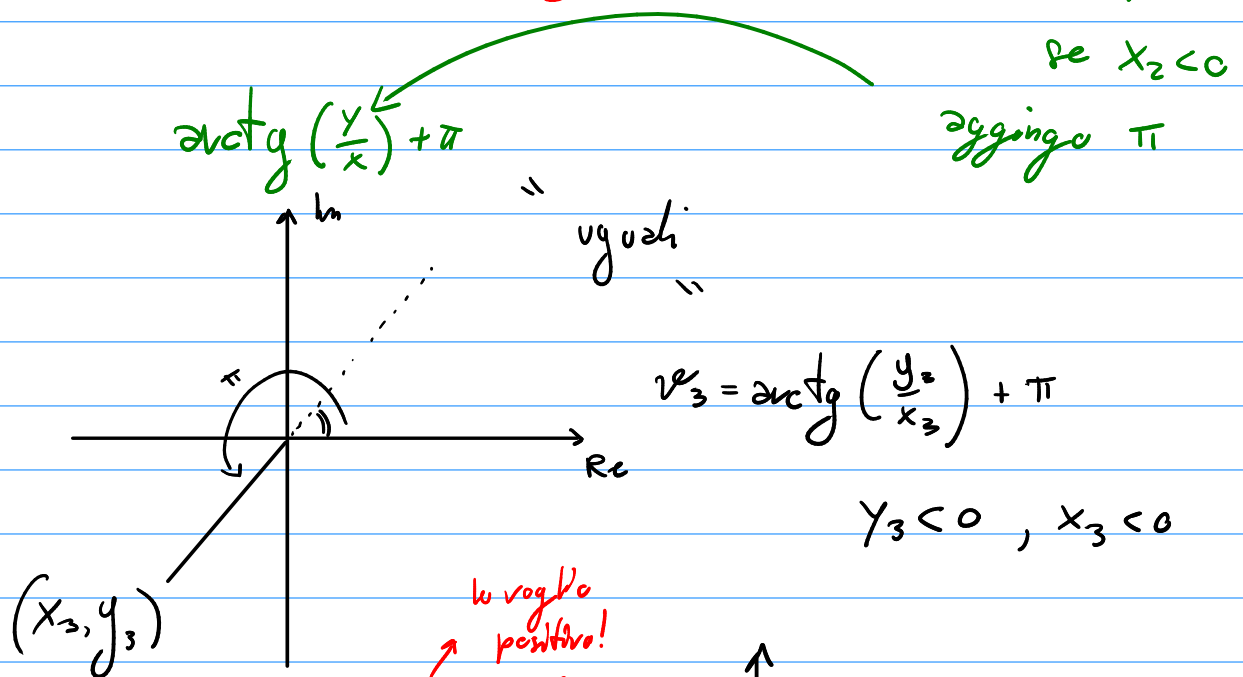 se x₂ < 0
arctg (y/x) + π
aggingo π
Im
"
uguali
"
π
φ₃ = arctg (y₃/x₃) + π
Re
y₃ < 0 , x₃ < 0
(x₃, y₃)
lo voglio
positivo!